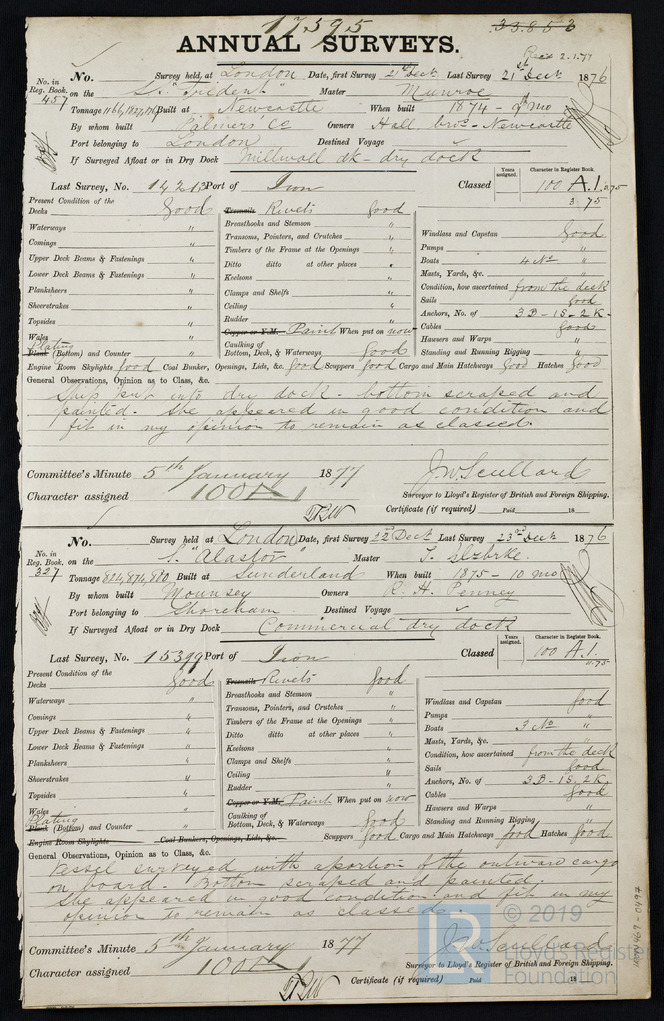 17,595 33.853
ANNUAL SURVEYS.
Recd 2.1.77
No. Survey held, at London Date, first Survey 21st Dect Last Survey 21st Dect 1876
No. in Reg. Book. 457 on the S. "Trident" Master Munroe
Tonnage 1166, 1827, 1767 Built at Newcastle When built 1874 - 9th mo
By whom built Palmers' Co Owners Hall bros - Newcastle
Port belonging to London Destined Voyage
If Surveyed Afloat or in Dry Dock Millwall dk - dry dock
Years assigned. Character in Register Book.
Last Survey, No. 14213 Port of Iron Classed 100 A.1. 3.75
3.75
Present Condition of the
Decks good
Waterways "
Comings "
Upper Deck Beams & Fastenings "
Lower Deck Beams & Fastenings "
Planksheers "
Sheerstrakes "
Topsides "
Wales "
Plating
Plank (Bottom) and Counter "
Treenails Rivets good
Breasthooks and Stemson "
Transoms, Pointers, and Crutches "
Timbers of the Frame at the Openings "
Ditto ditto at other places "
Keelsons "
Clamps and Shelfs "
Ceiling "
Rudder "
Copper or Y.M. Paint When put on now
Caulking of Bottom, Deck, & Waterways Good
Windlass and Capstan good
Pumps "
Boats 4 No "
Masts, Yards, &c. "
Condition, how ascertained from the deck
Sails good
Anchors, No. of 3 B - 1 S - 2 K -
Cables good
Hawsers and Warps "
Standing and Running Rigging "
Engine Room Skylights good Coal Bunker, Openings, Lids, &c. good Scuppers good Cargo and Main Hatchways good Hatches good
General Observations, Opinion as to Class, &c.
Ship put into dry dock - bottom scraped and
painted - She appeared in good condition and
fit in my opinion to remain as classed.
Committee's Minute 5th January 1877
Character assigned 100A1
J.W. Scullard
Surveyor to Lloyd's Register of British and Foreign Shipping.
Certificate (if required) Paid 18
No. Survey held at London Date, first Survey 22nd Dect Last Survey 23rd Dect 1876
No. in Reg. Book. 327 on the S. "Alastor" Master
Tonnage 824, 874, Built at Sunderland When built 1875 - 10 mo
By whom built Mounsey Owners R. H. Penney
Port belonging to Shoreham Destined Voyage
If Surveyed Afloat or in Dry Dock Commercial dry dock
Years assigned. Character in Register Book.
Last Survey, No. 15399 Port of Iron Classed 100 A.1.
11.75
Present Condition of the
Decks good
Waterways "
Comings "
Upper Deck Beams & Fastenings "
Lower Deck Beams & Fastenings "
Planksheers "
Sheerstrakes "
Topsides "
Wales "
Plating
Plank (Bottom) and Counter "
Treenails Rivets good
Breasthooks and Stemson "
Transoms, Pointers, and Crutches "
Timbers of the Frame at the Openings "
Ditto ditto at other places "
Keelsons "
Clamps and Shelfs "
Ceiling "
Rudder "
Copper or Y.M. Paint When put on now
Caulking of Bottom, Deck, & Waterways good
Windlass and Capstan good
Pumps "
Boats 3 No "
Masts, Yards, &c. "
Condition, how ascertained from the deck
Sails good
Anchors, No. of 3 B - 1 S. 2 K.
Cables good
Hawsers and Warps "
Standing and Running Rigging "
Engine Room Skylights Coal Bunkers, Openings, Lids, &c. Scuppers good Cargo and Main Hatchways good Hatches good
General Observations, Opinion as to Class, &c.
Vessel surveyed with a portion of the outward cargo
on board. Bottom scraped and painted.
She appeared in good condition and fit in my
opinion to remain as classed.
Committee's Minute 5th January 1877
Character assigned 100A1
J.W. Scullard
Surveyor to Lloyd's Register of British and Foreign Shipping.
Certificate (if required) Paid 18
© 2019
Lloyd's Register
Foundation